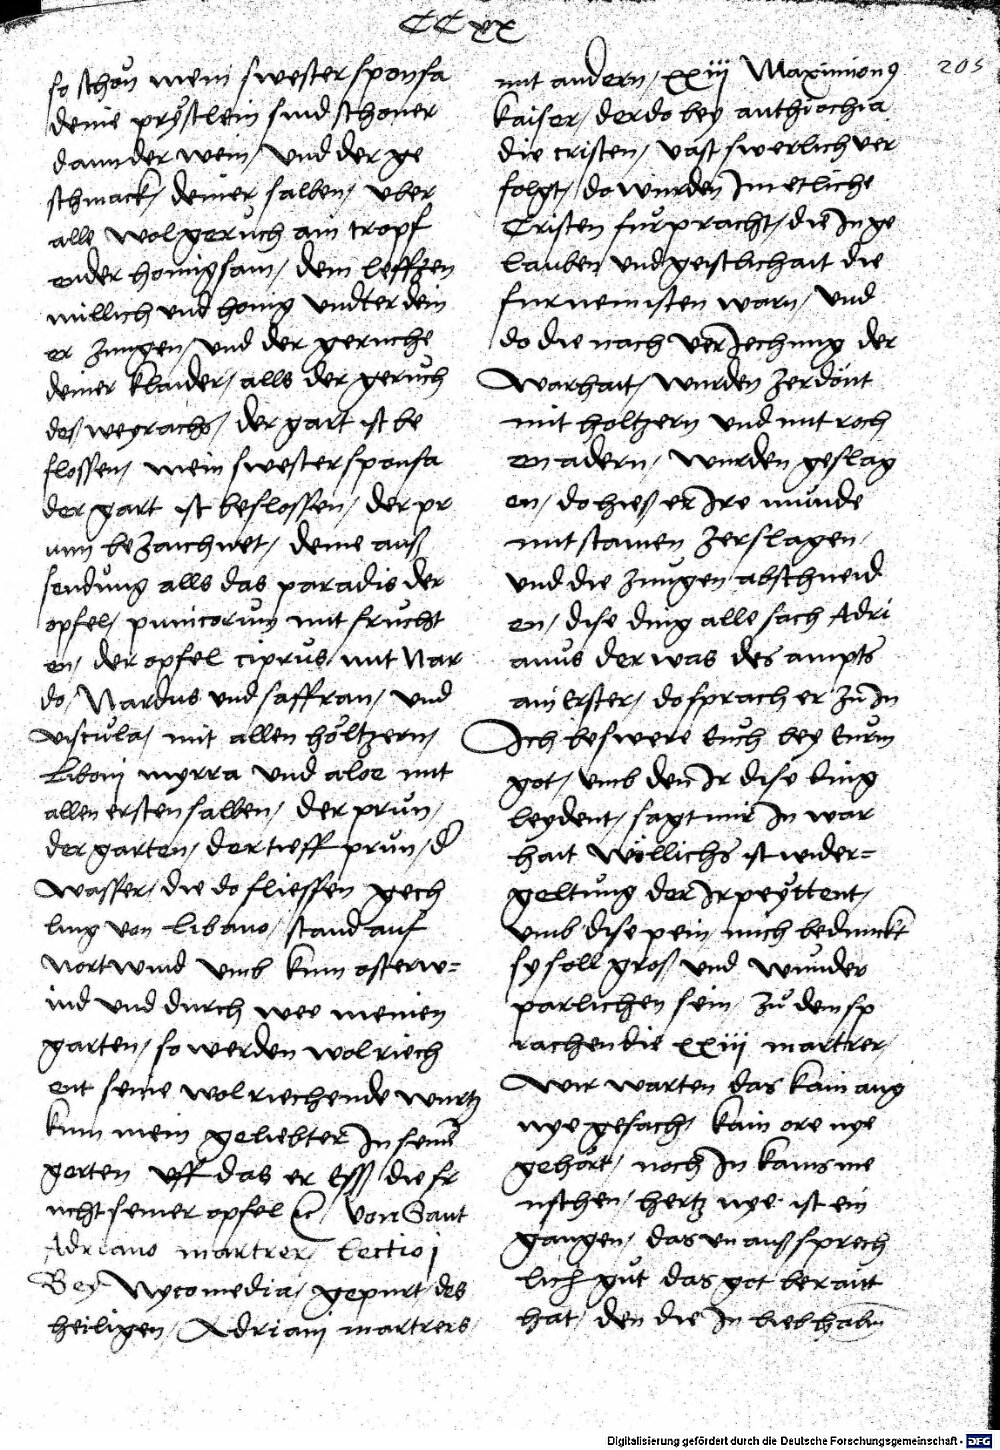 CCxx
205
so schon mein swester sponsa
deine prüstlein sind schoner
dann der wein / und der ge
schmack / deiner salben / uber
alle wolgeruch ain tropf
ender honigsam / dein leffzen
millich und honig undter dein
er zungen / und der geruche
deiner klaider / alls der geruch
des weyrachs / der gart ist be
slossen / mein swester sponsa
der gart ist beslossen / der pr
unn bezaichnet / deine auß
sendung alls das paradis der
opfel / punicorum mit frucht
en / der opfel ciprus / mit Nar
do / Nardus und saffran / und
viscula / mit allen höltzern /
Liboni myrra und aloe mit
allen ersten salben / der prun /
der garten / der tieff prun / d
wasser / die do fliessen gech
ling von Libano / stand auf
nortwind umb kum osterw=
ind und durch wee meinen
garten / so werden wolriech
ent seine wolriechende wurtz
kum mein geliebter In seinen
gerten uff das er Ess / die fr
ucht seiner opfel etc / Von Sant
Adriano martrer / Lectio j
Bey Nycomedia / gepurt des
heiligen / Adriani martrers /
mit andern / xxiij Maximionus
kaiser / der do bey anthiochia
die cristen / vast swerlich ver
folgt / do wurden Im etliche
Cristen furpracht / die In ge
lauben und geistlichait die
furnemisten warn / und
do die nach verJechung der
Warhait / wurden zerdönt
mit holtzern und mit roch
en adern / wurden geslag
en / do hieß er Ire munde
mit stainen zerslagen /
und die zungen abschneid
en / dise ding alle sach Adri
anus der was des ampts
ain Erster / do sprach er zu In
Ich beswere Euch bey Eurm
got / umb den Ir dise ding
leydent / sagt mir In war
hait wöllichs ist wider=
geltung der Ir peyttent /
umb dise pein / mich bedunckt
sy soll groß und wunder
parlichen sein / zu dem sp
rachen die xxiij martrer /
Wir warten das kain aug
nye gesach / kain ore nye
gehört / noch In kains me
nschen / hertz nye ist ein
gangen / das unaußsprech
lich gut das got berait
hat / den die In lieb haben
Digitalisierung gefördert durch die Deutsche Forschungsgemeinschaft - DFG